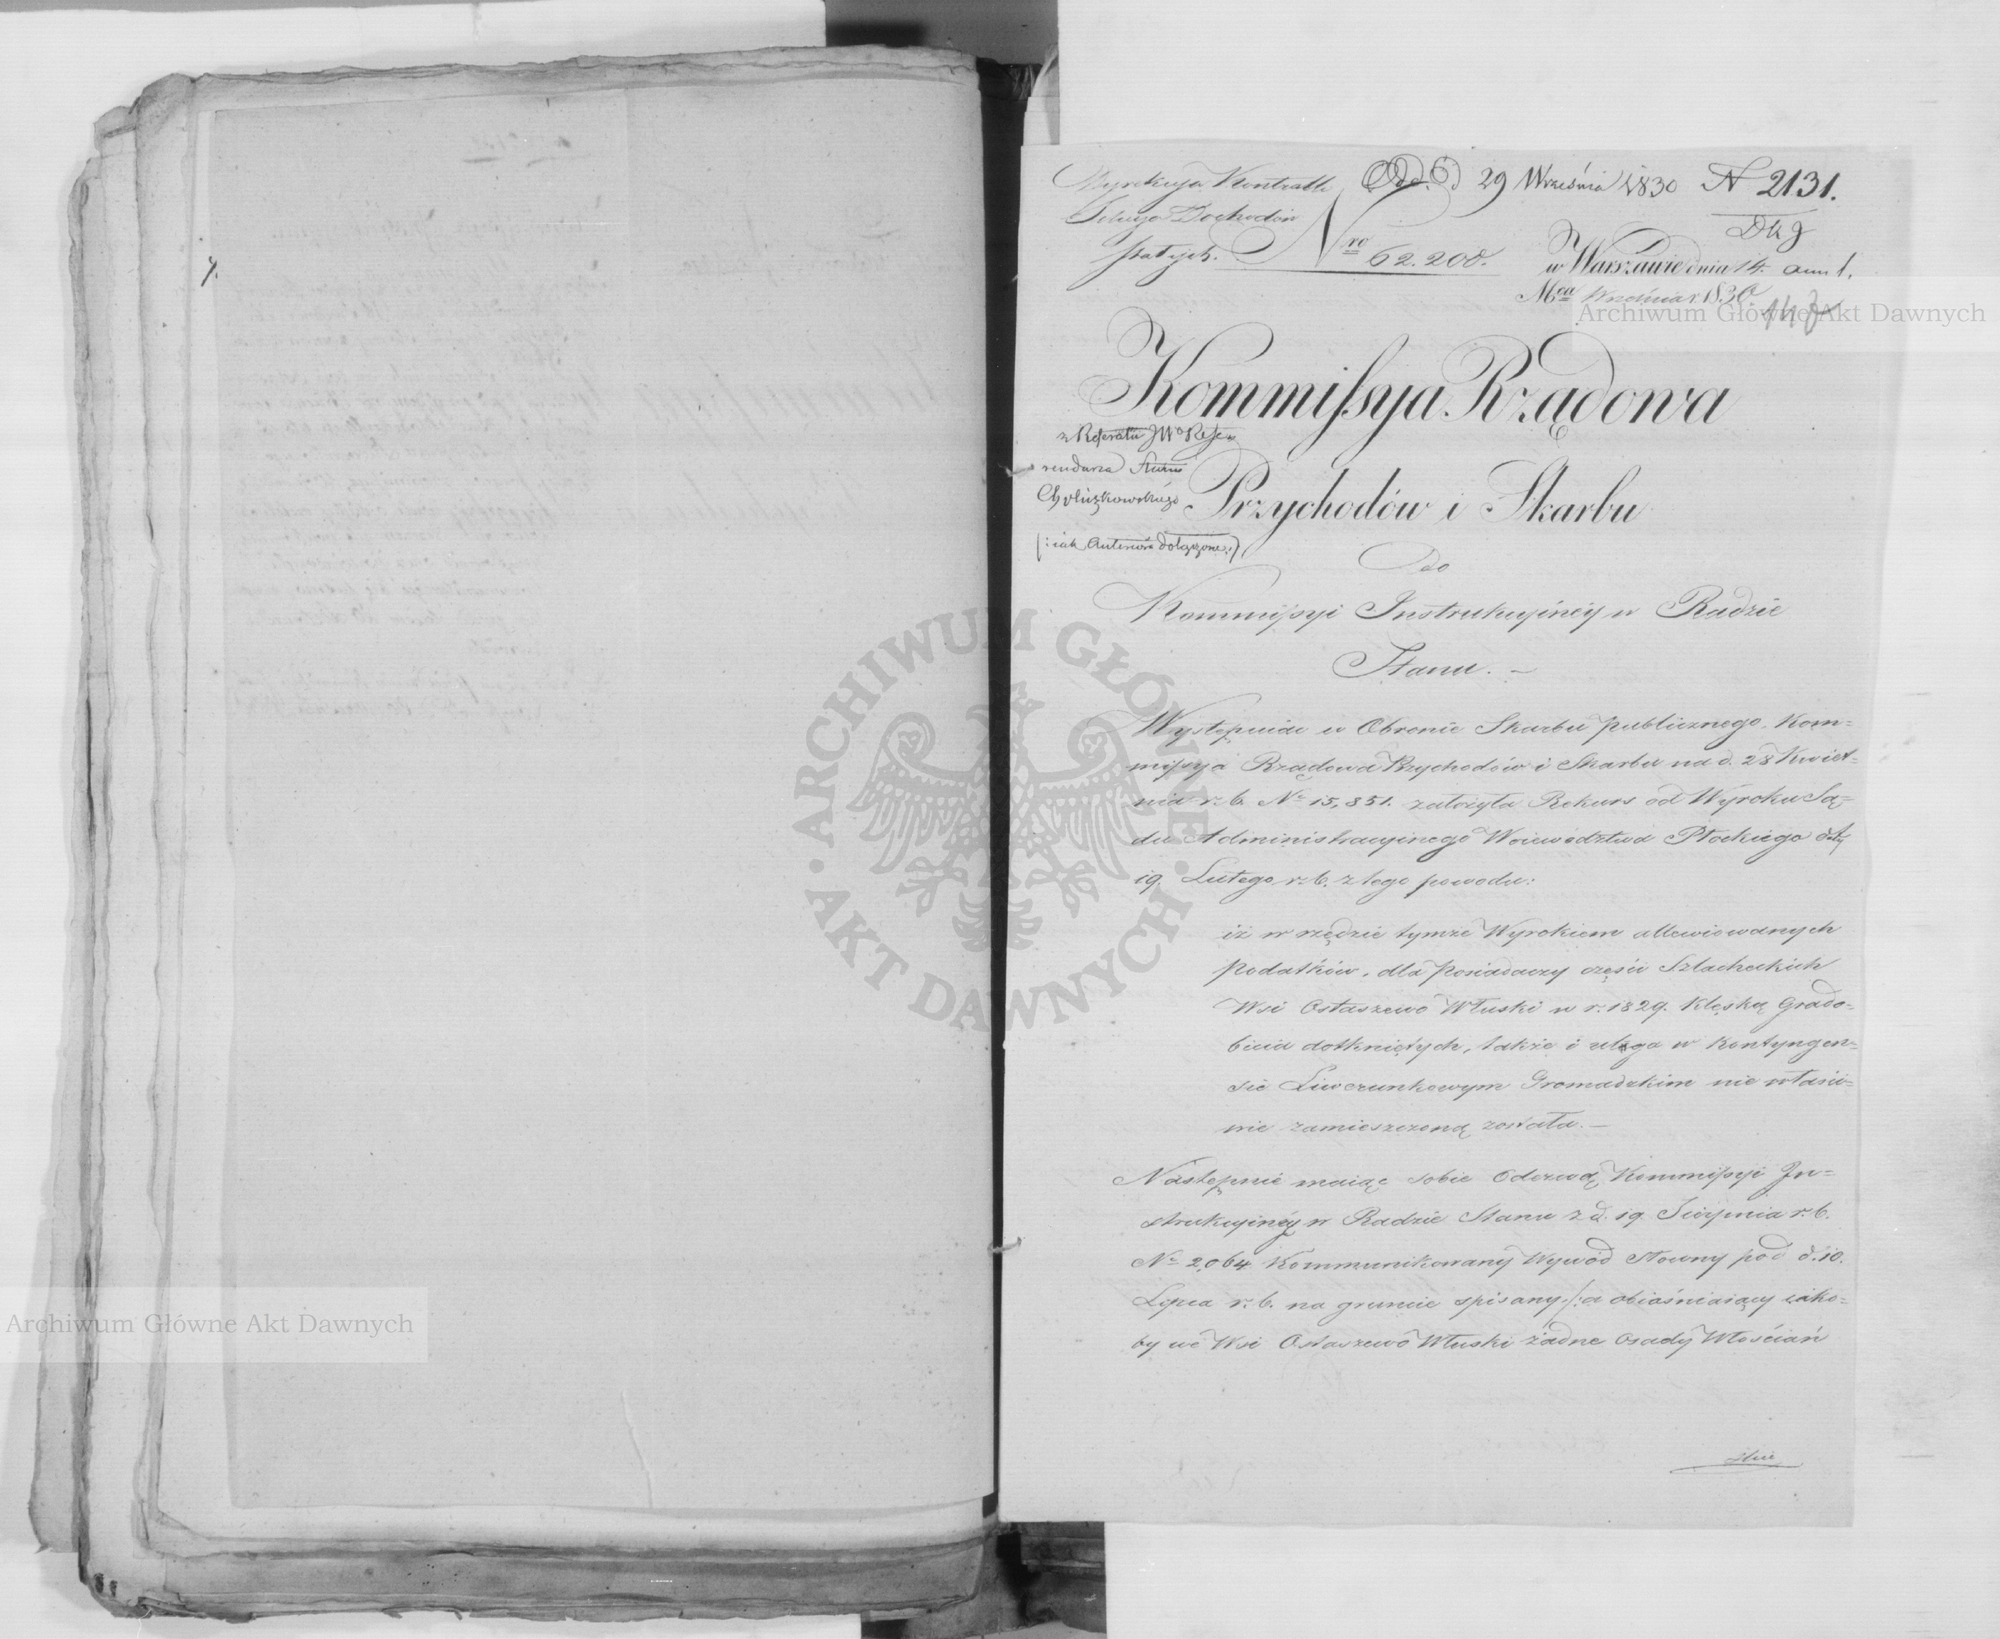 7.
Dyrekcya Kontrolli
Dochodów
stałych.
Odd. 6) 29 Września 1830 N 2131.
Nro 62.200.
w Warszawie dnia 14.
Mca Września r. 1830
Kommissya Rządowa
z Referatu JWo Refe-
rendarza Stanu
Przychodów i Skarbu
(: iak Anteriora dołączone :)
Do
Kommissyi Instrukcyinéy w Radzie
Stanu. —
Występuiąc w Obronie Skarbu publicznego, Kom-
missya Rządowa Przychodów i Skarbu na d. 28 Kwiet-
nia r. b. No 15,851. założyła Rekurs od Wyroku Są-
du Administracyinego Woiewództwa Płockiego
19. Lutego r. b. z tego powodu:
iż w rzędzie tymże Wyrokiem allewiowanych
podatków, dla Posiadaczy części Szlacheckich
Wsi Ostaszewo Włuski w r. 1829. Klęską Grado-
bicia dotkniętych, także i ulga w Kontyngen-
sie Liwerunkowym Gromadzkim nie właści-
wie zamieszczoną została. —
Następnie maiąc sobie Odezwą Kommissyi In-
strukcyinéy w Radzie Stanu z d. 19 Sierpnia r. b.
No 2,064 Kommunikowany Wywód Słowny pod d. 10.
Lipca r. b. na gruncie spisany /: a obiaśniaiący iako-
by we Wsi Ostaszewo Włuski żadne Osady Włościań
Archiwum Główne Akt Dawnych
ARCHIWUM GŁÓWNE · AKT DAWNYCH ·
Archiwum Główne Akt Dawnych